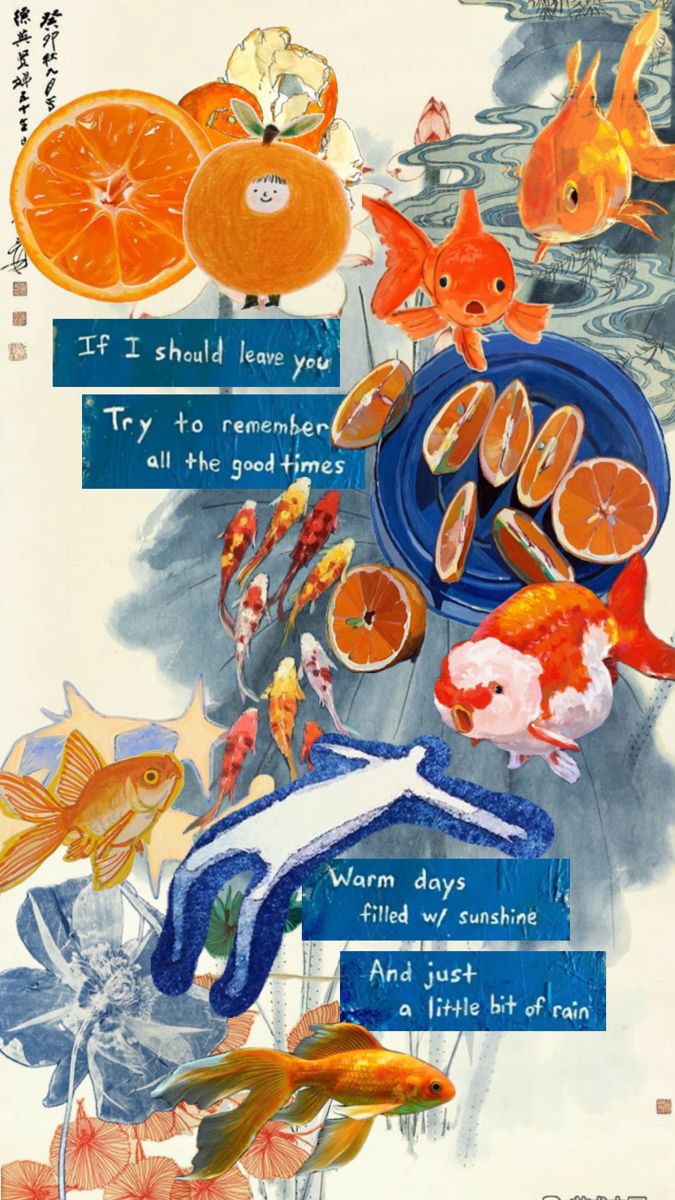 癸卯秋九月
If I should leave you
Try to remember
all the good times
Warm days
filled w/ sunshine
And just
a little bit of rain